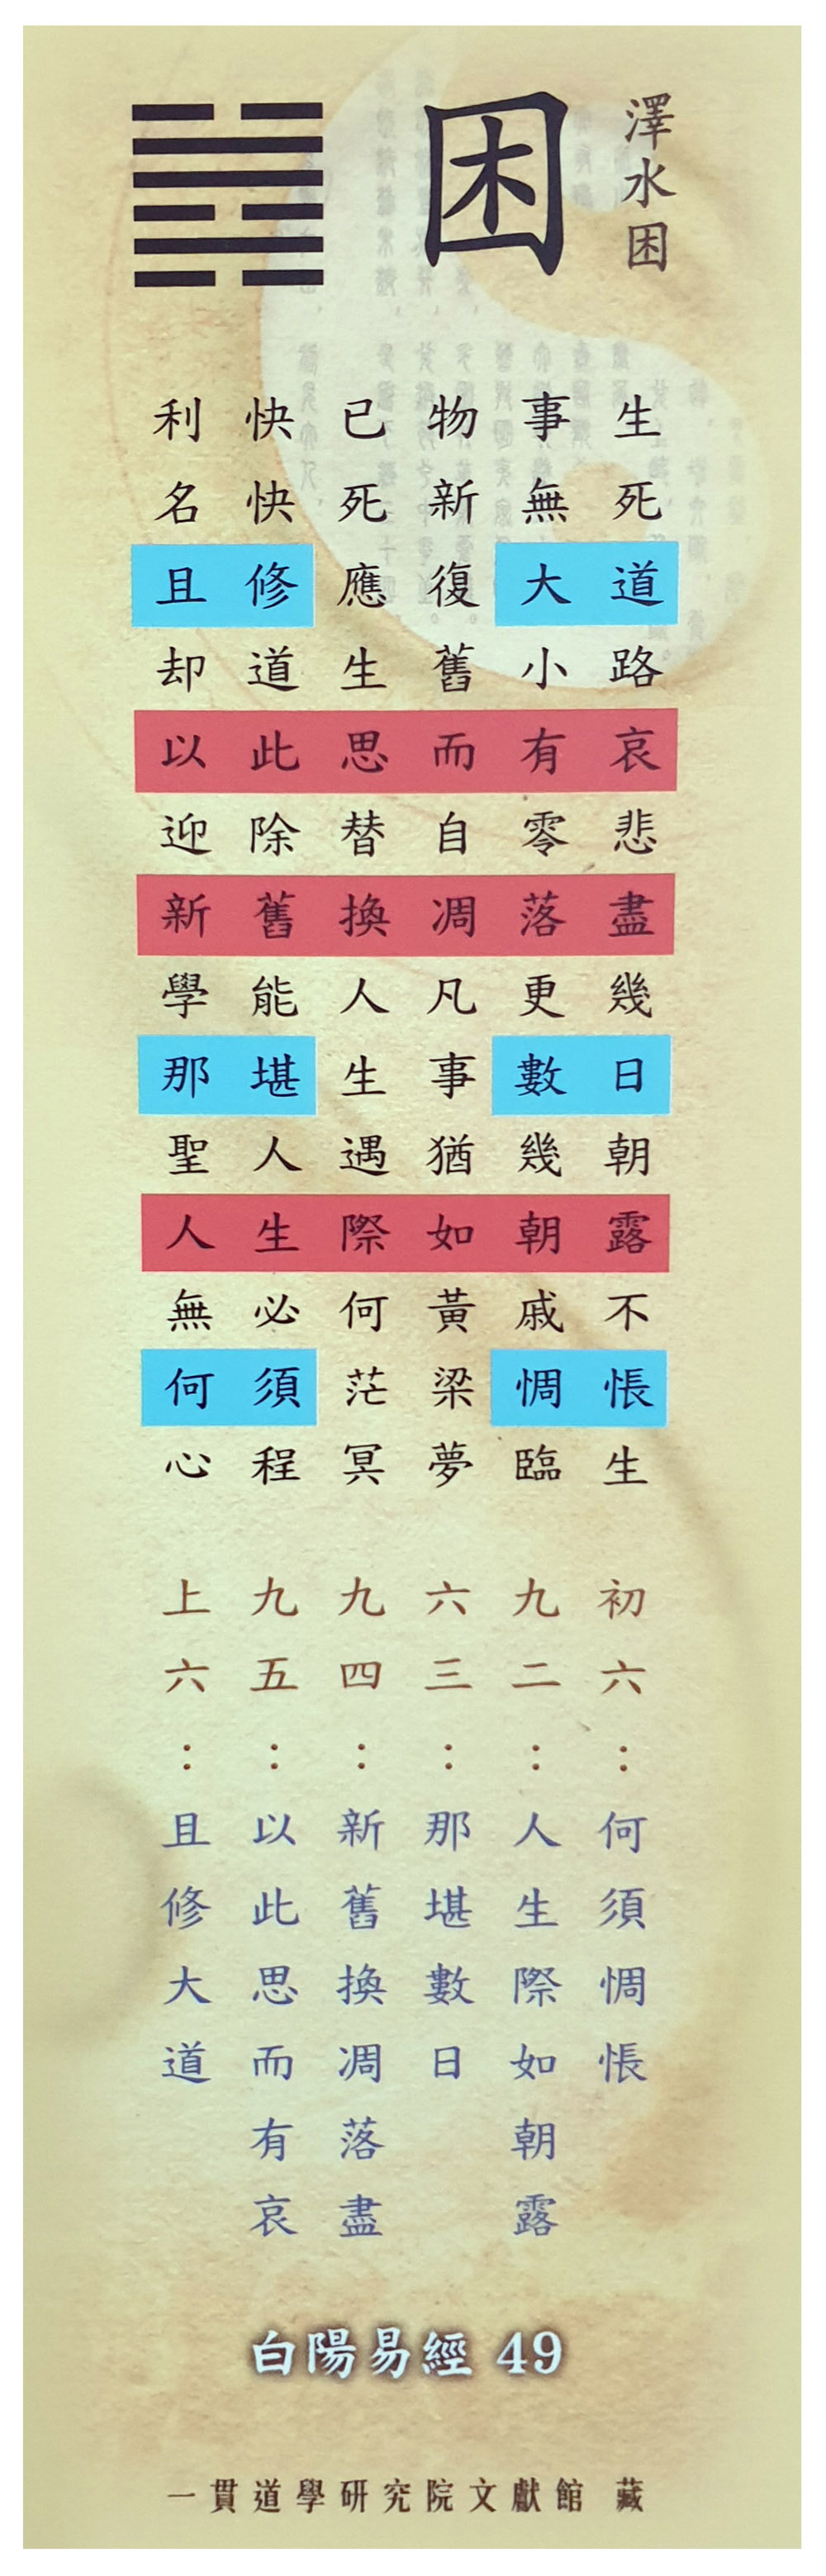 澤水困
困
生死道路哀悲盡幾日朝露不悵生
事無大小有零落更數幾朝戚惆臨
物新復舊而自凋凡事猶如黃梁夢
已死應生思替換人生遇際何茫冥
快快修道此除舊能堪人生必須程
利名且却以迎新學那聖人無何心
初六：何須惆悵
九二：人生際如朝露
六三：那堪數日
九四：新舊換凋落盡
九五：以此思而有哀
上六：且修大道
白陽易經 49
一貫道學研究院文獻館 藏